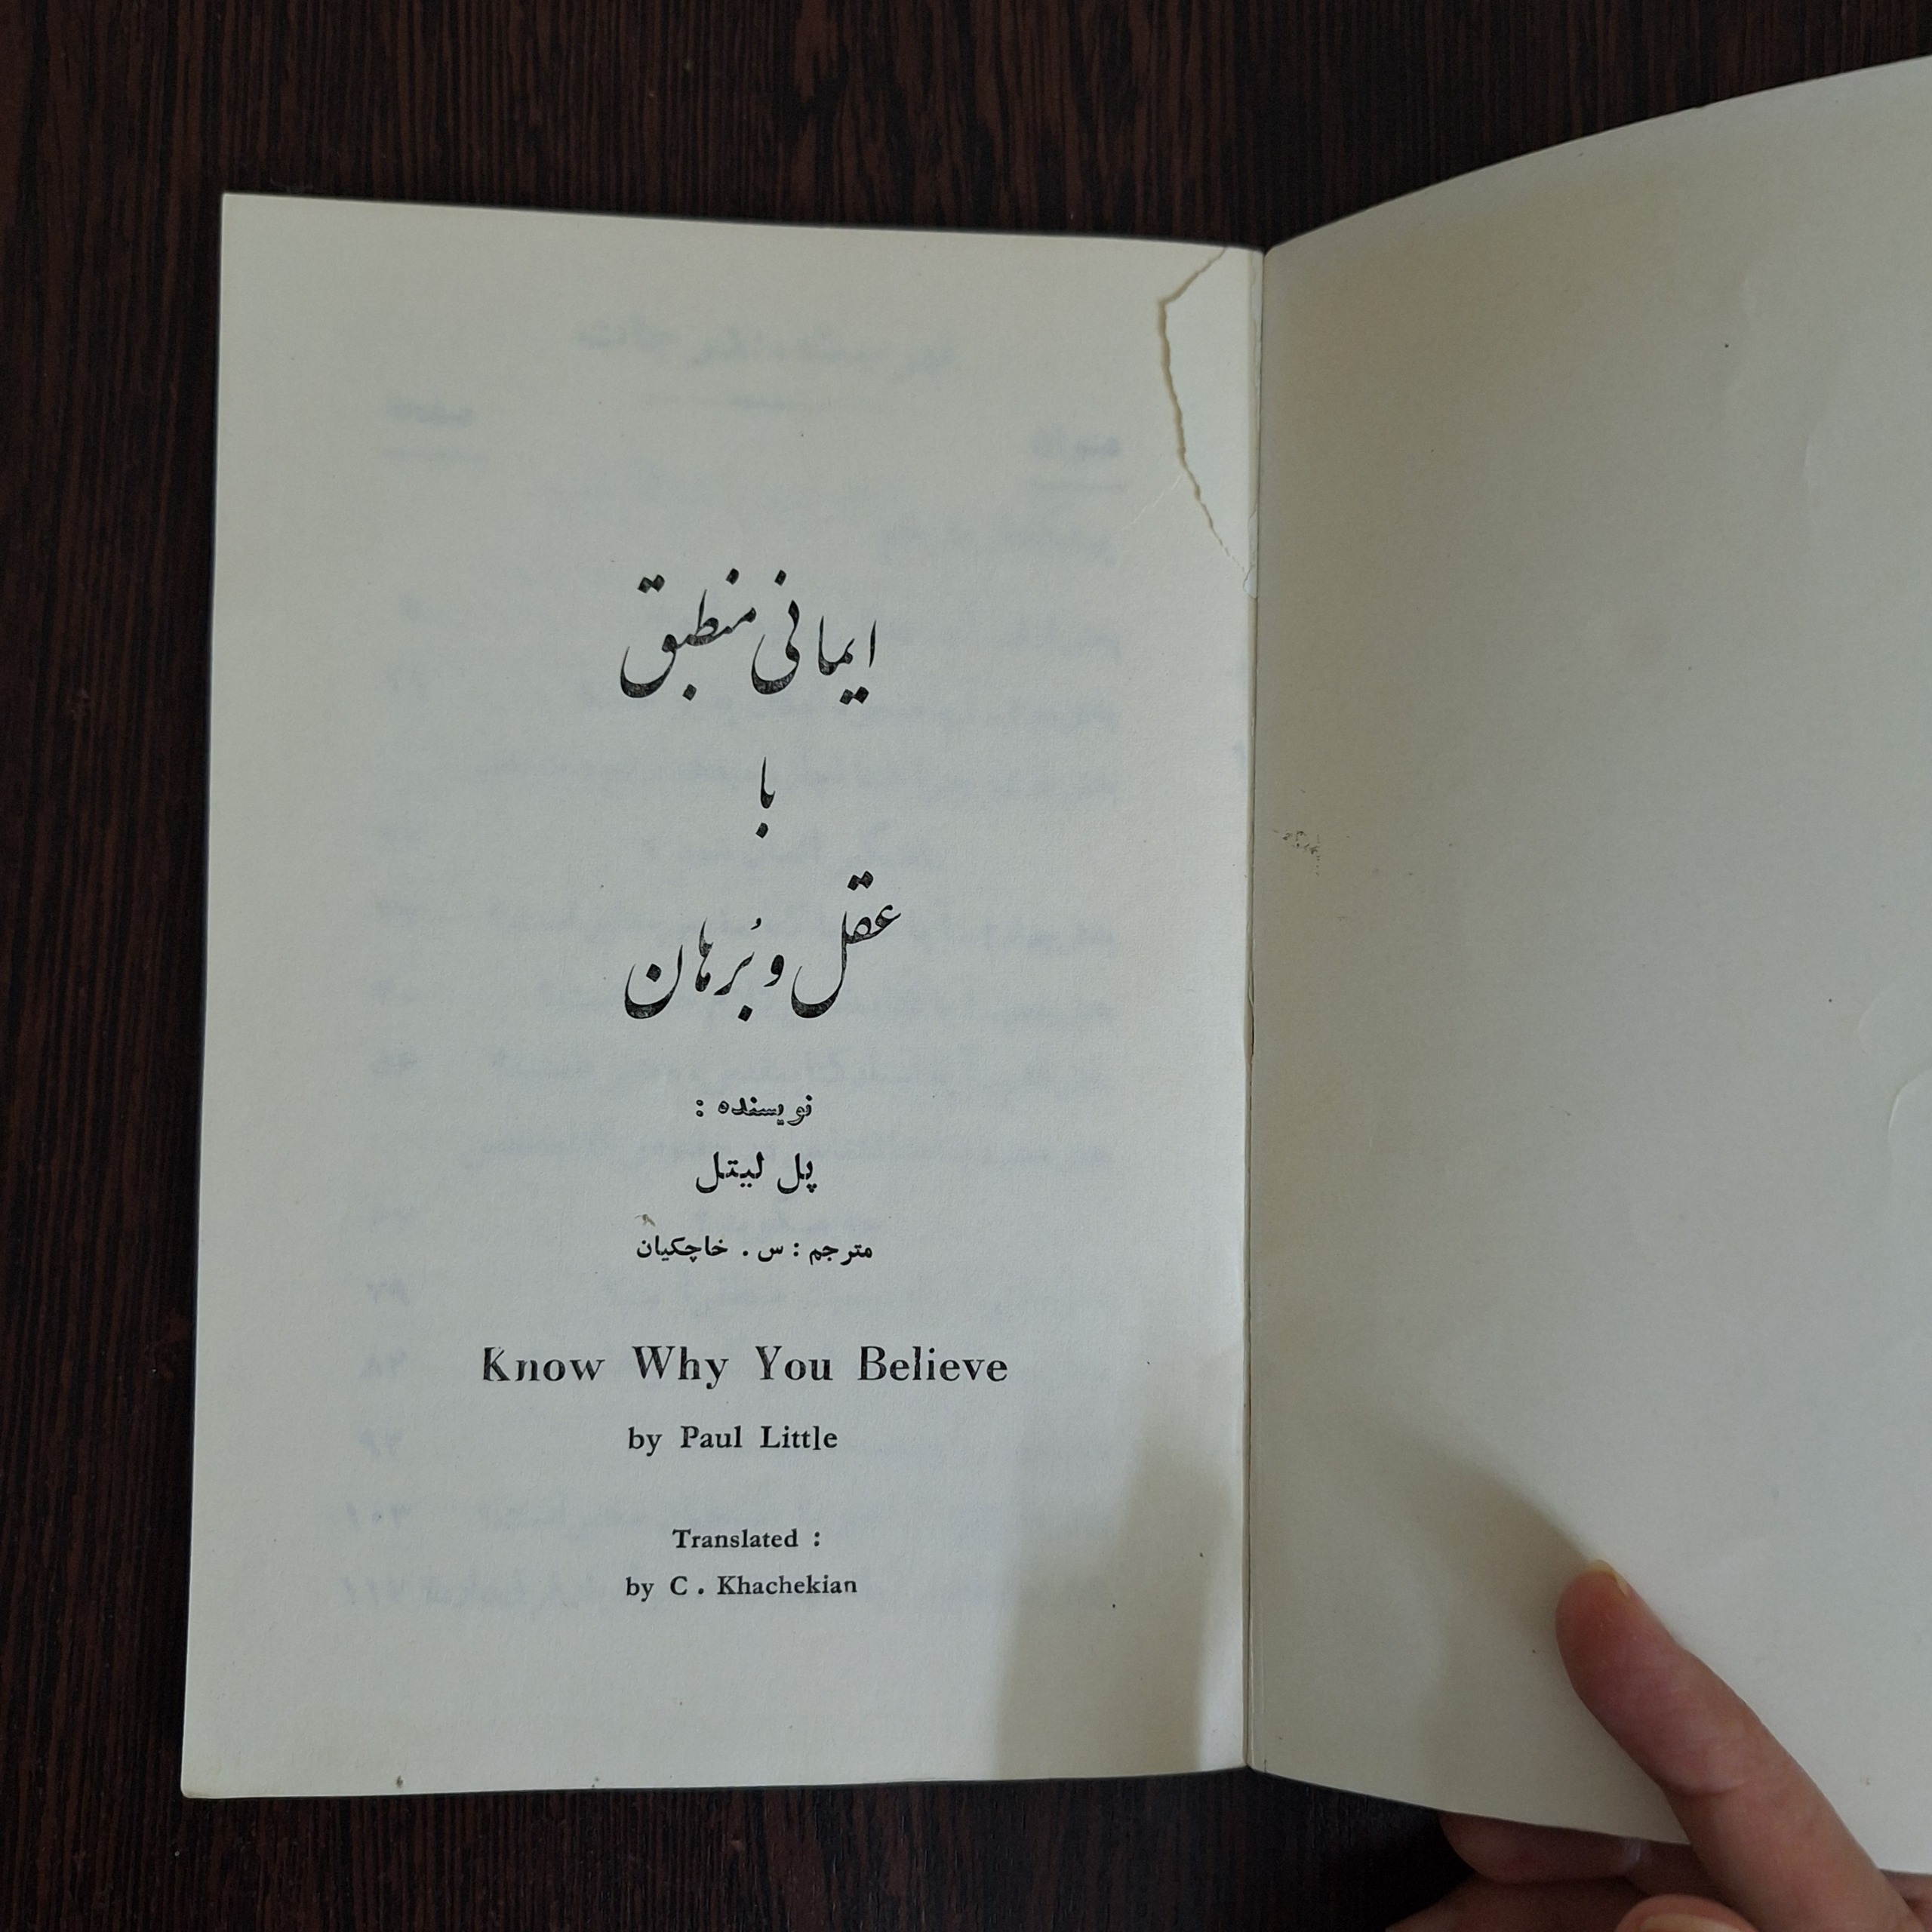 ایمانی منطبق
با
عقل و بُرهان
نویسنده :
پل لیتل
مترجم : س . خاچکیان
Know Why You Believe
by Paul Little
Translated :
by C . Khachekian